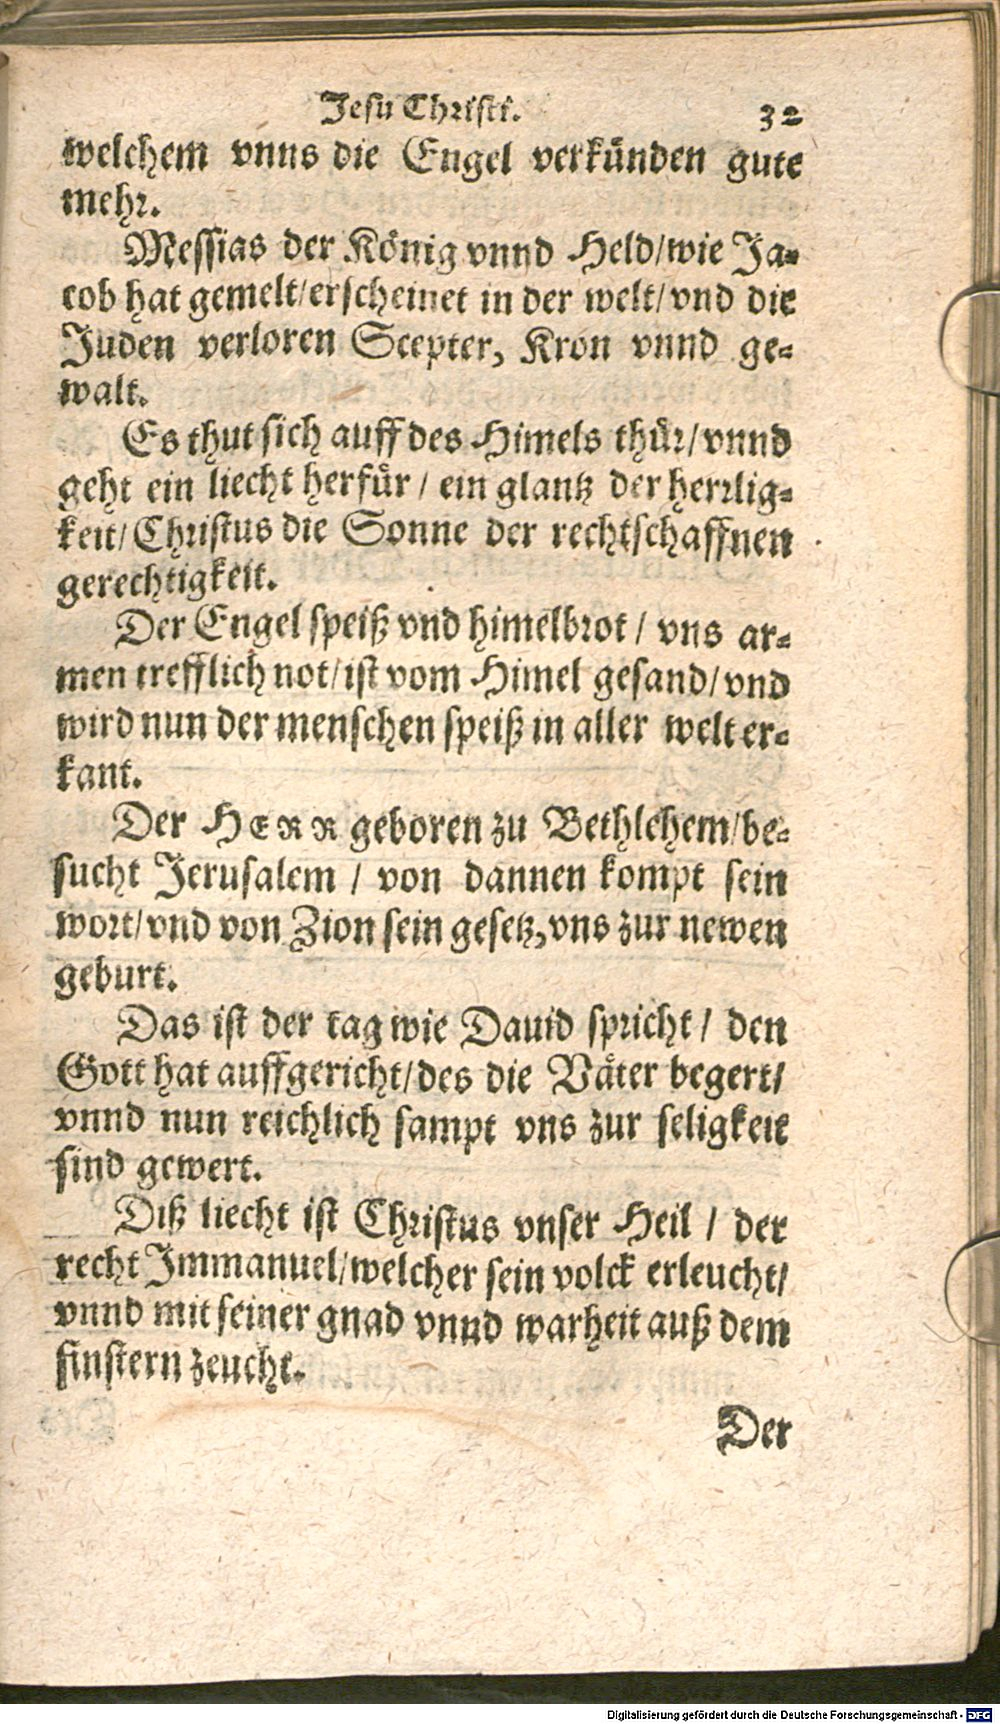 Jesu Christi. 32
welchem vnns die Engel verkünden gute
mehr.
Messias der König vnnd Held/wie Ja-
cob hat gemelt/erscheinet in der welt/vnd die
Juden verloren Scepter, Kron vnnd ge-
walt.
Es thut sich auff des Himels thür/vnnd
geht ein liecht herfür / ein glantz der herrlig-
keit/Christus die Sonne der rechtschaffnen
gerechtigkeit.
Der Engel speiß vnd himelbrot / vns ar-
men trefflich not/ist vom Himel gesand/vnd
wird nun der menschen speiß in aller welt er-
kant.
Der HERR geboren zu Bethlehem/be-
sucht Jerusalem / von dannen kompt sein
wort/vnd von Zion sein gesetz,vns zur newen
geburt.
Das ist der tag wie Dauid spricht / den
Gott hat auffgericht/des die Väter begert/
vnnd nun reichlich sampt vns zur seligkeit
sind gewert.
Diß liecht ist Christus vnser Heil / der
recht Immanuel/welcher sein volck erleucht/
vnnd mit seiner gnad vnnd warheit auß dem
finstern zeucht.
Der
Digitalisierung gefördert durch die Deutsche Forschungsgemeinschaft - DFG